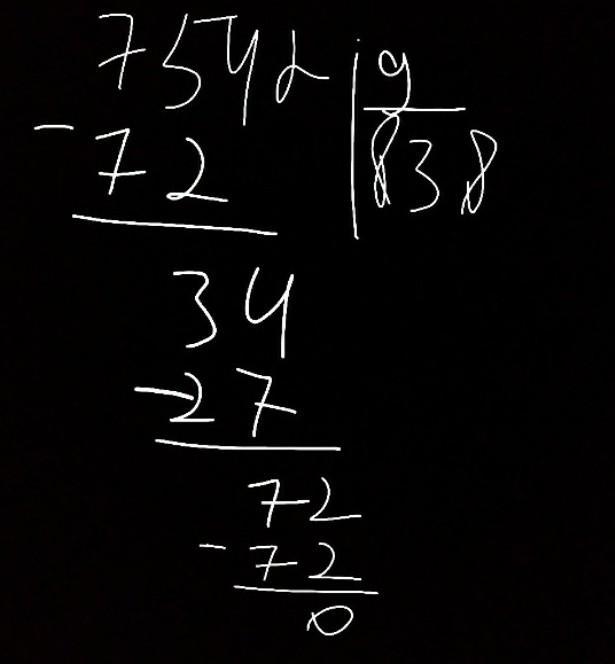 7542 | 9
- 72 | 838
34
- 27
72
- 72
0